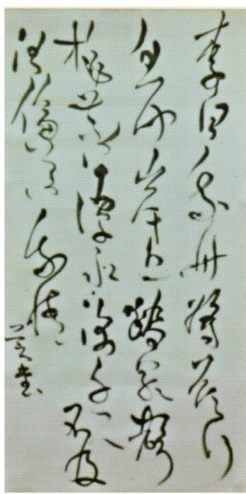 李白乘舟將欲行
忽聞岸上踏歌聲
桃花潭水深千尺不及
汪倫送我情